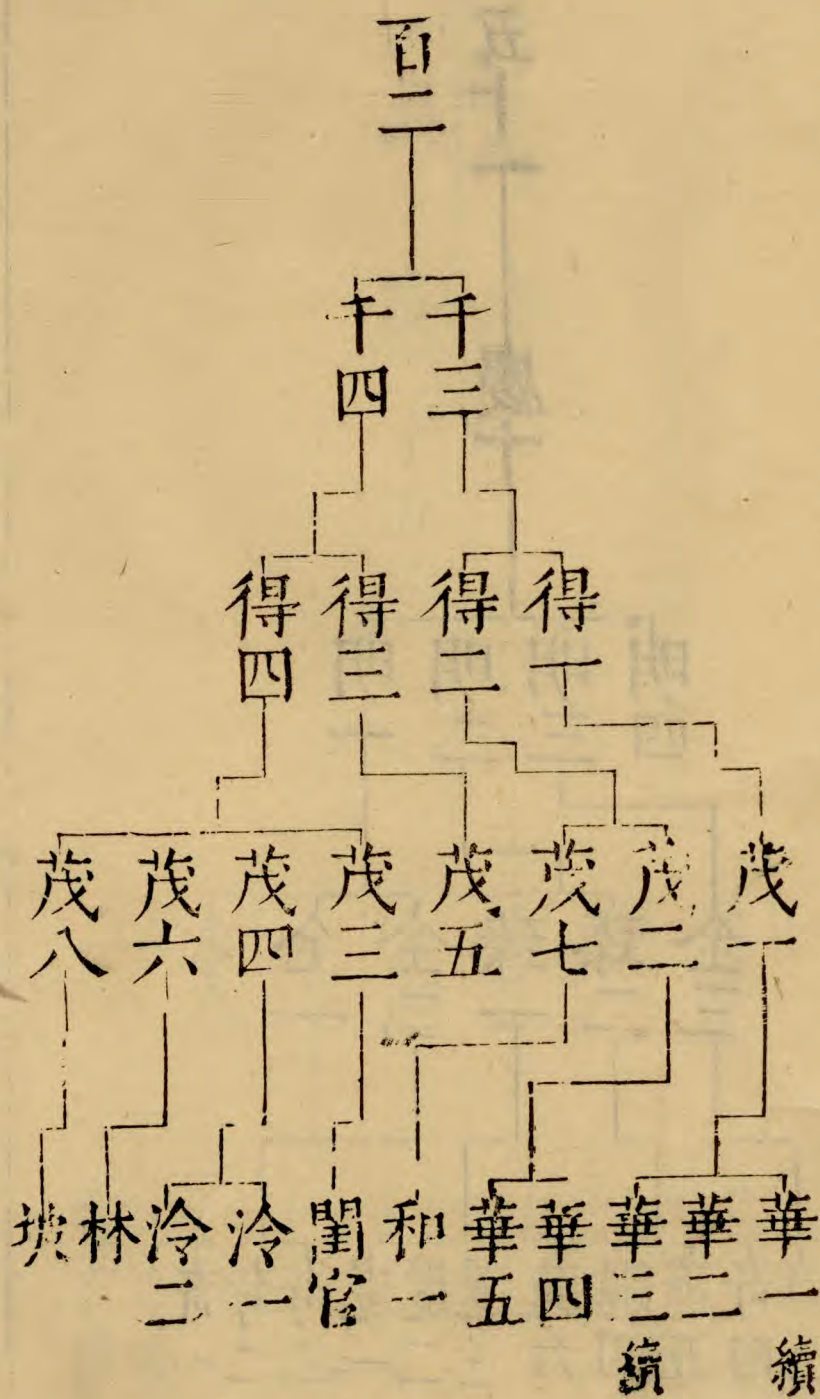 百二
千三
千四
得一
得二
得三
得四
茂一
茂二
茂七
茂五
茂三
茂四
茂六
茂八
華一
續
華二
華三
續
華四
華五
和一
閏官
泠一
泠二
林